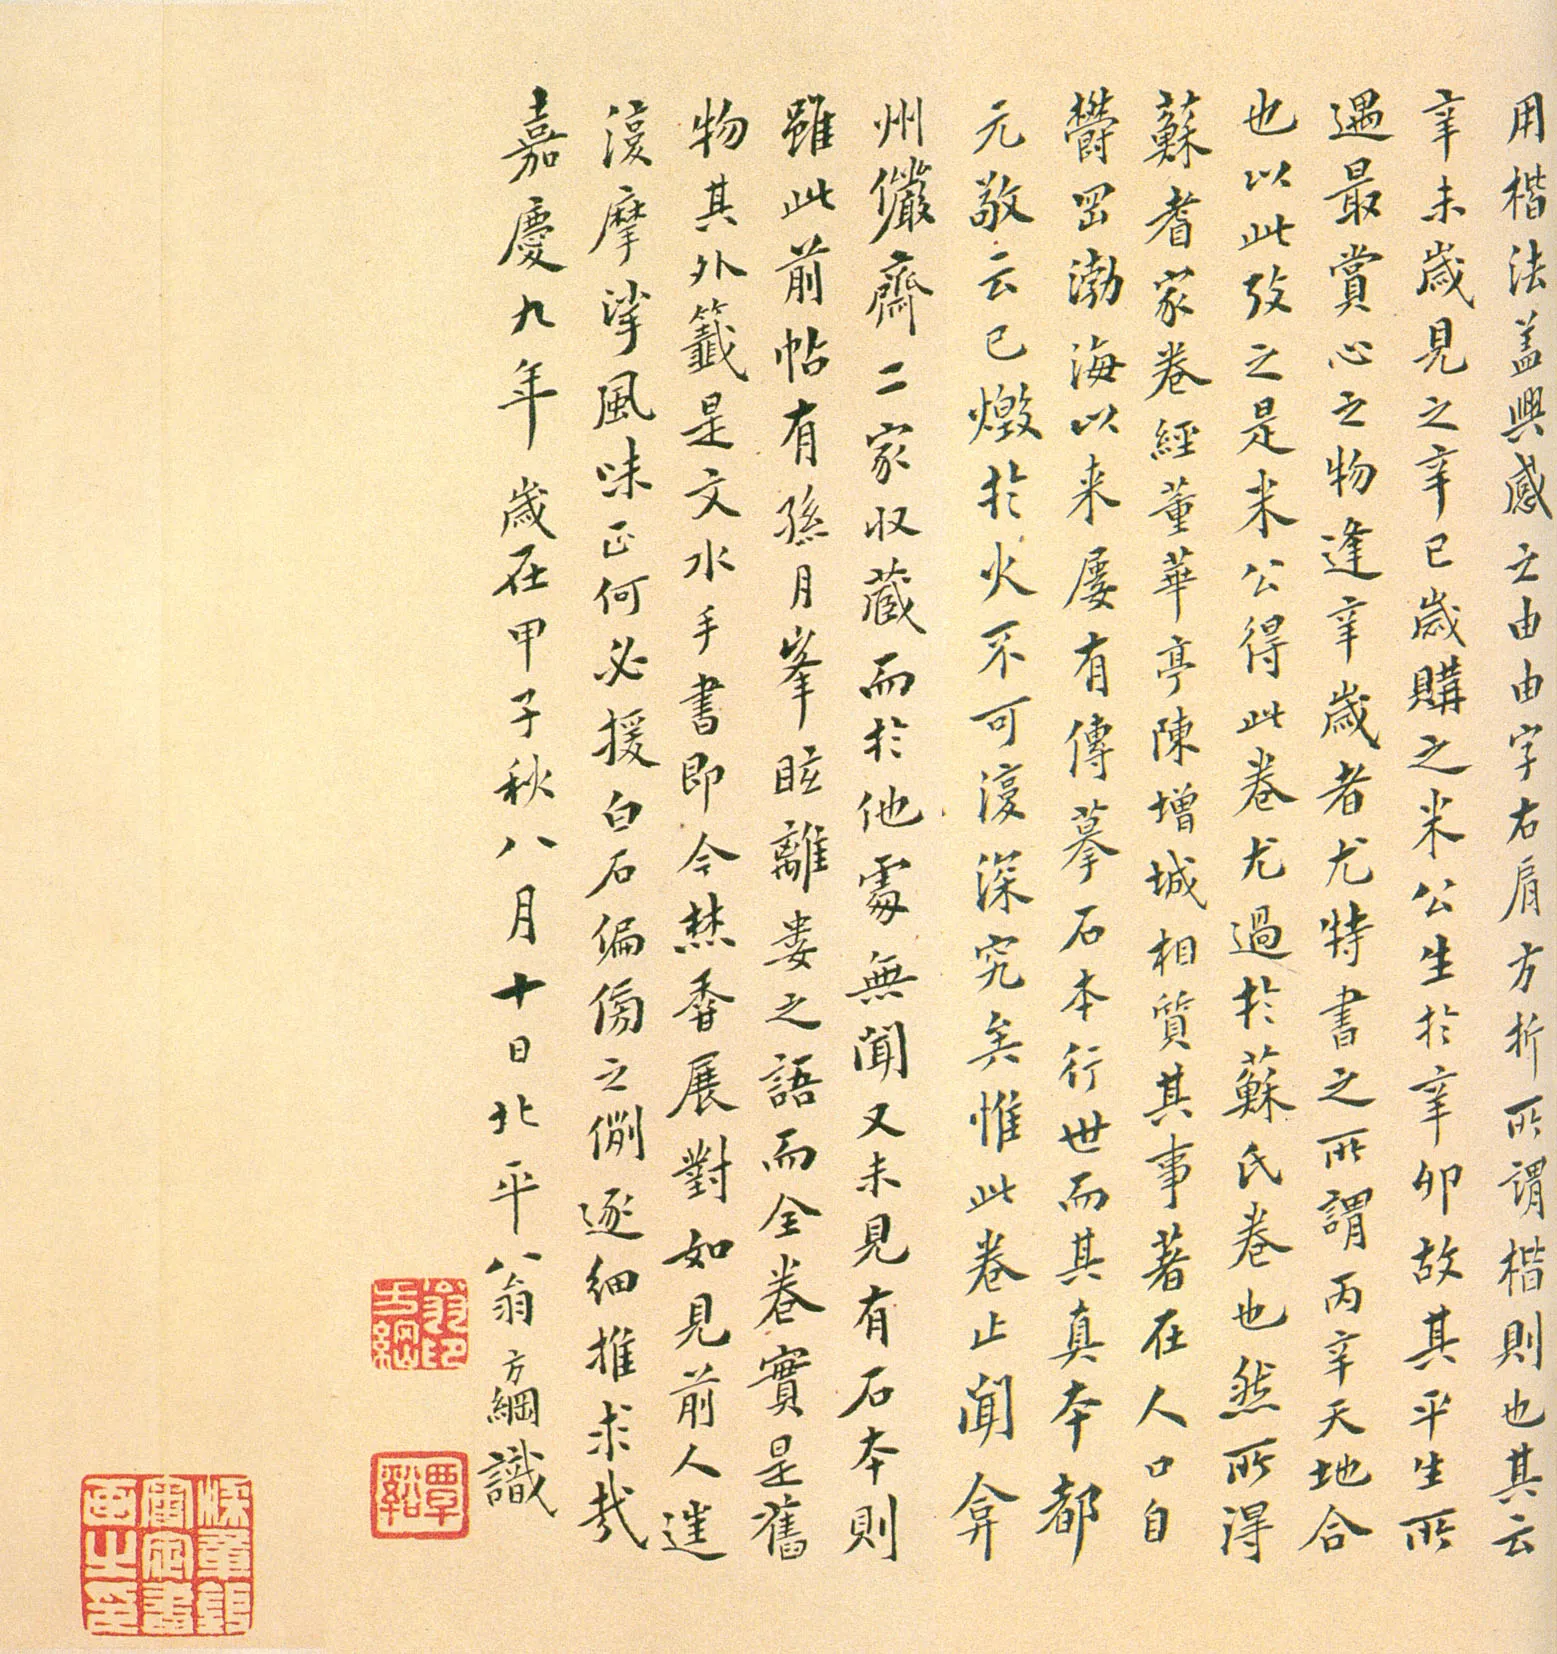 用楷法盖興感之由由字右肩方折所謂楷則也其云
辛未歲見之辛巳歲購之米公生於辛卯故其平生所
遇最賞心之物逢辛歲者尤特書之所謂丙辛天地合
也以此攷之是米公得此卷尤過於蘇氏卷也然所得
蘇耆家卷經董華亭陳增城相質其事著在人口自
欝罡渤海以来屢有傳摹石本行世而其真本都
元敬云已燬於火不可復深究矣惟此卷止聞弇
州儼齋二家收藏而於他處無聞又未見有石本則
雖此前帖有孫月峯眩離婁之語而全卷實是舊
物其外籤是文水手書即今爇香展對如見前人進
復摩挲風味正何必援白石偏傍之例逐細推求哉
嘉慶九年歲在甲子秋八月十日北平翁方綱識
翁方綱印
覃谿